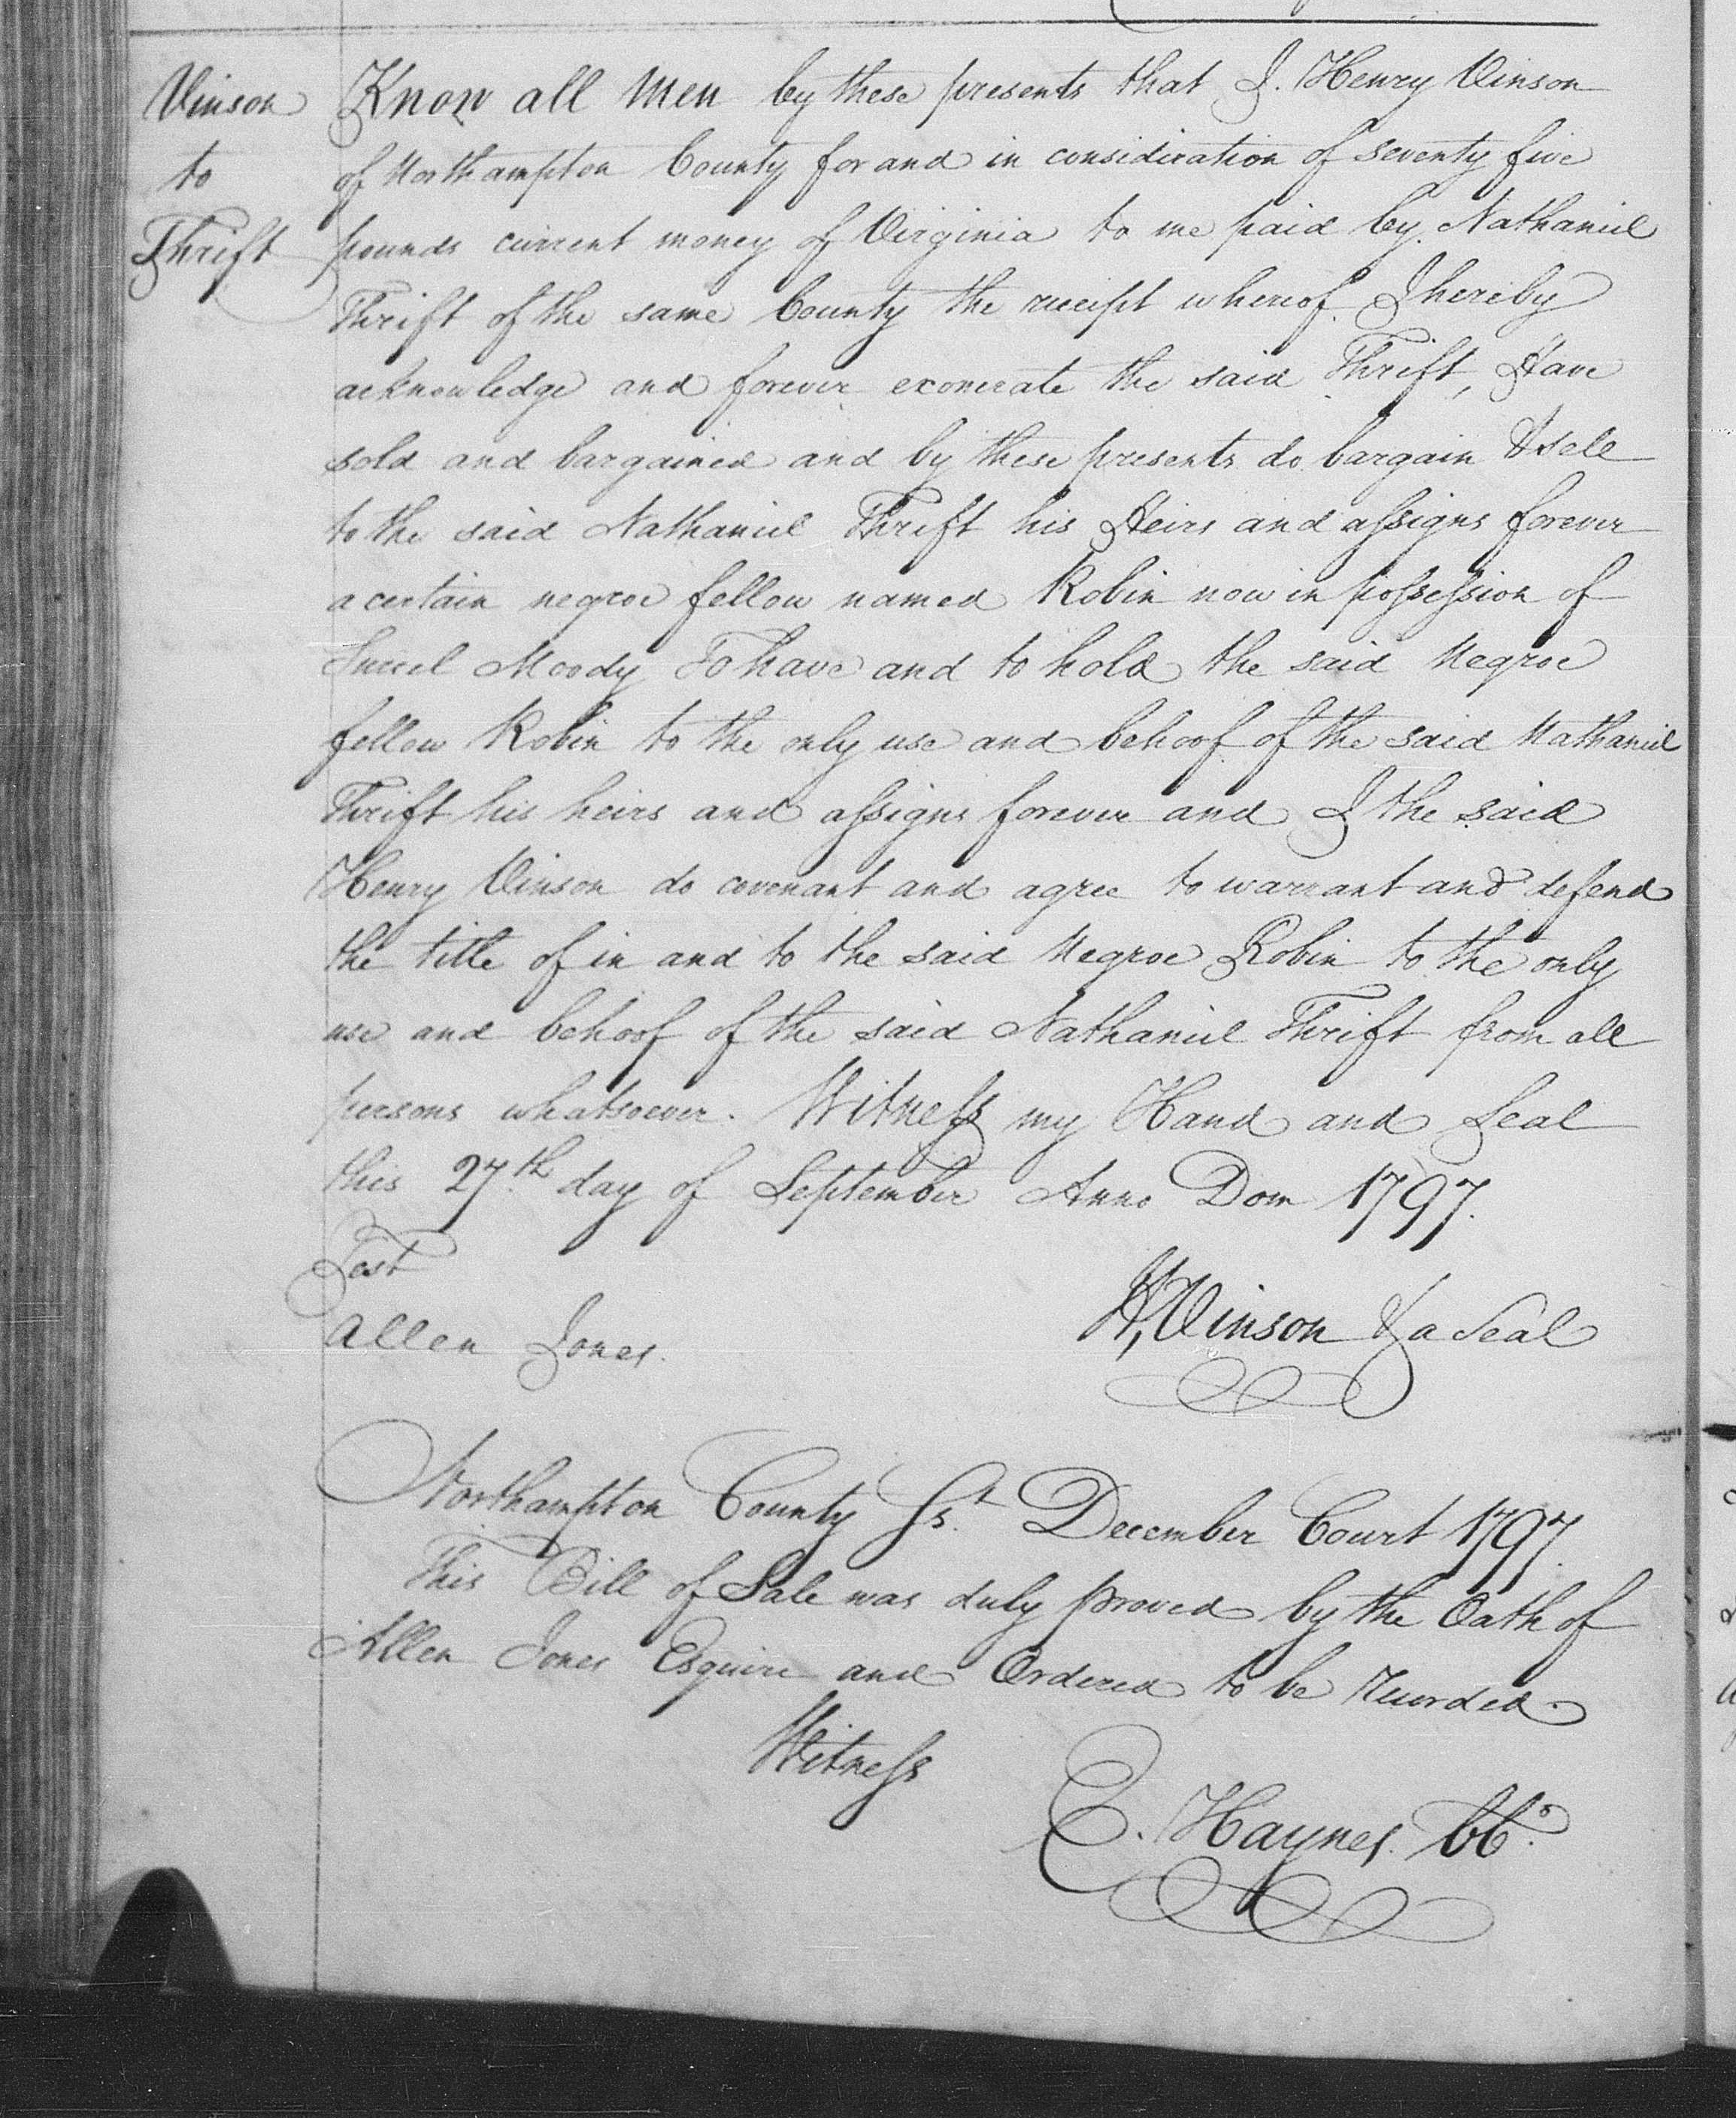 Vinson
to
Thrift
Know all men by these presents that I. Henry Vinson
of Northampton County for and in consideration of seventy five
pounds current money of Virginia to me paid by Nathaniel
Thrift of the same County the receipt whereof I hereby
acknowledge and forever exonerate the said Thrift, Have
sold and bargained and by these presents do bargain & sell
to the said Nathaniel Thrift his Heirs and assigns forever
a certain negroe fellow named Robin now in possession of
Moody To have and to hold the said Negroe
fellow Robin to the only use and behoof of the said Nathaniel
Thrift his heirs and assigns forever and I the said
Henry Vinson do covenant and agree to warrant and defend
the title of in and to the said Negroe Robin to the only
use and behoof of the said Nathaniel Thrift from all
persons whatsoever. Witness my Hand and Seal
this 27.th day of September Anno Dom 1797.
Test
Allen Jones.
H, Vinson & a Seal
Northampton County Sst. December Court 1797.
This Bill of Sale was duly proved by the Oath of
Allen Jones Esquire and Ordered to be recorded.
Witness
E. Haynes. CC.